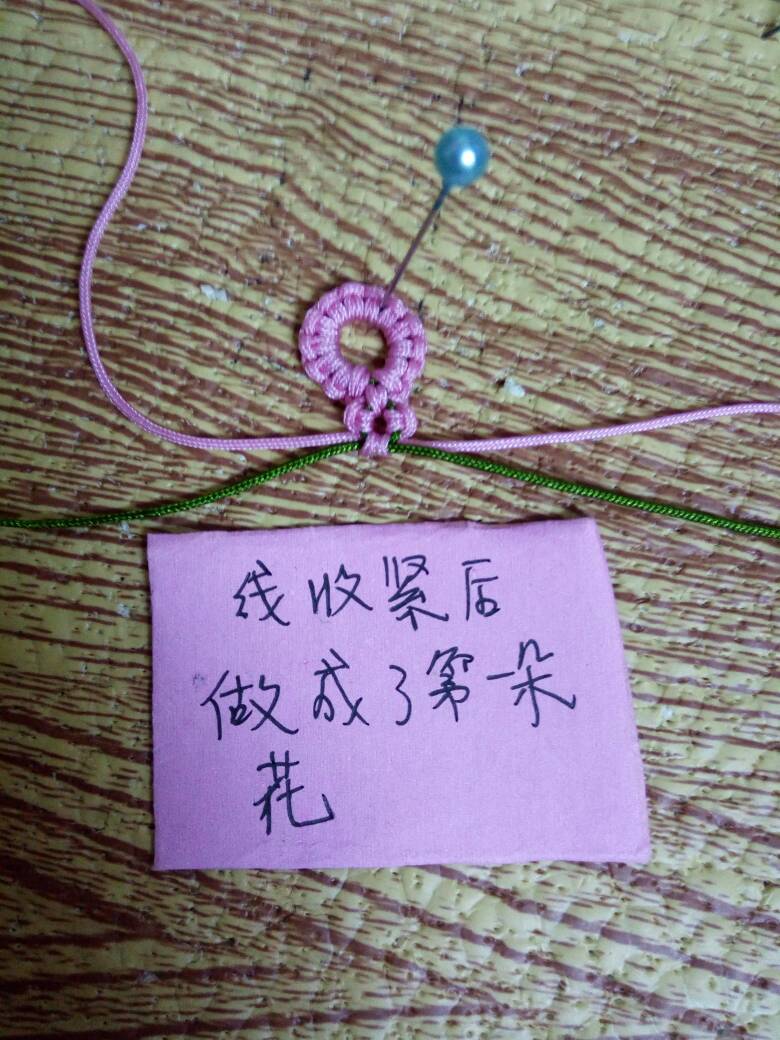 线收紧后
做成了第一朵
花